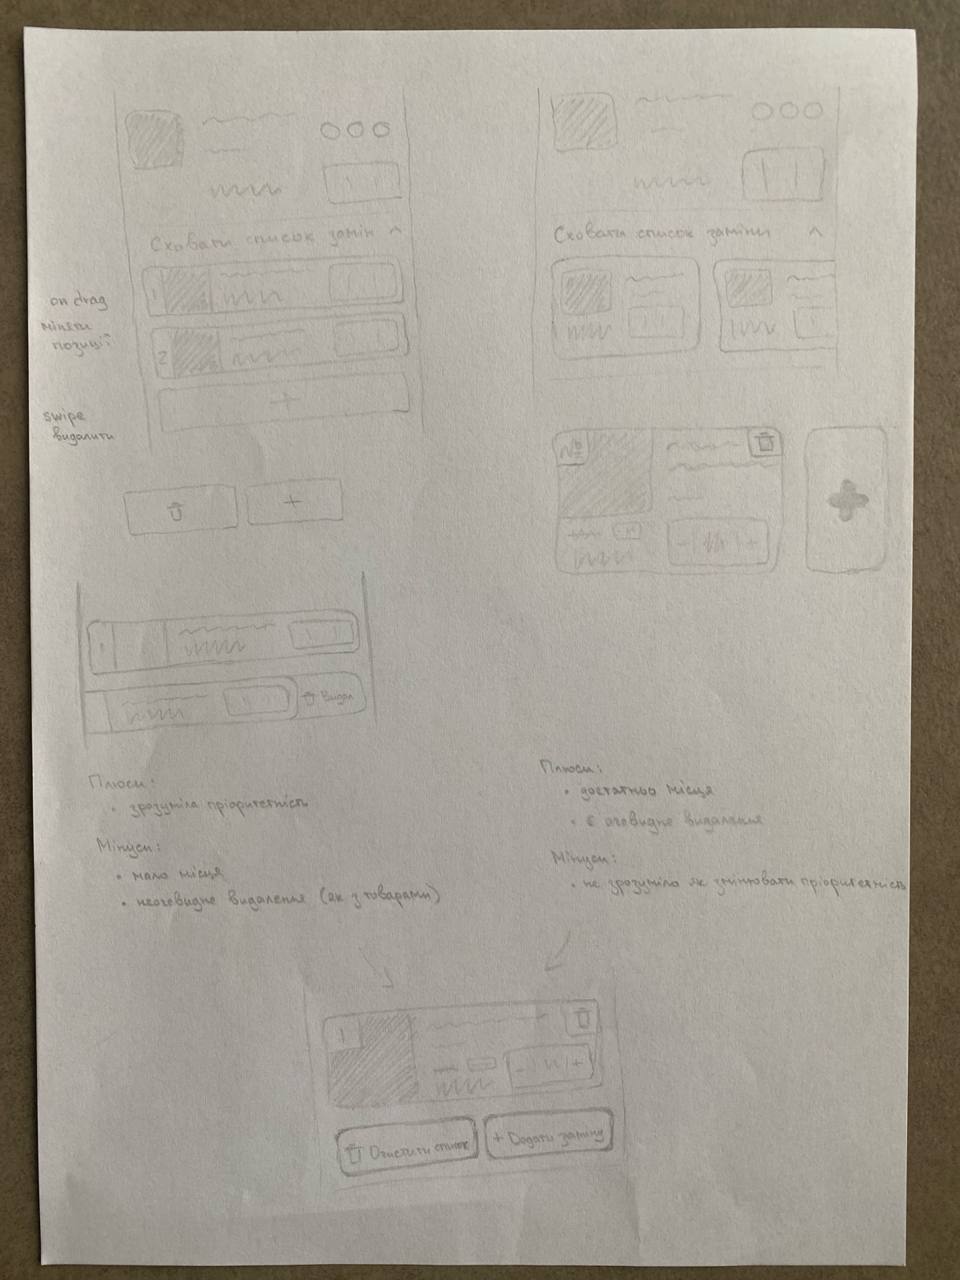 Сховати список замін
1
2
on drag
міняти
позиції
swipe
видалити
+
+
1
Видал
Плюси:
• зрозуміла пріоритетність
Мінуси:
• мало місця
• неочевидне видалення (як з товарами)
Сховати список заміни
№
- +
Плюси:
• достатньо місця
• є очевидне видалення
Мінуси:
• не зрозуміло як змінювати пріоритетність
1
- +
Очистити список
+ Додати заміну